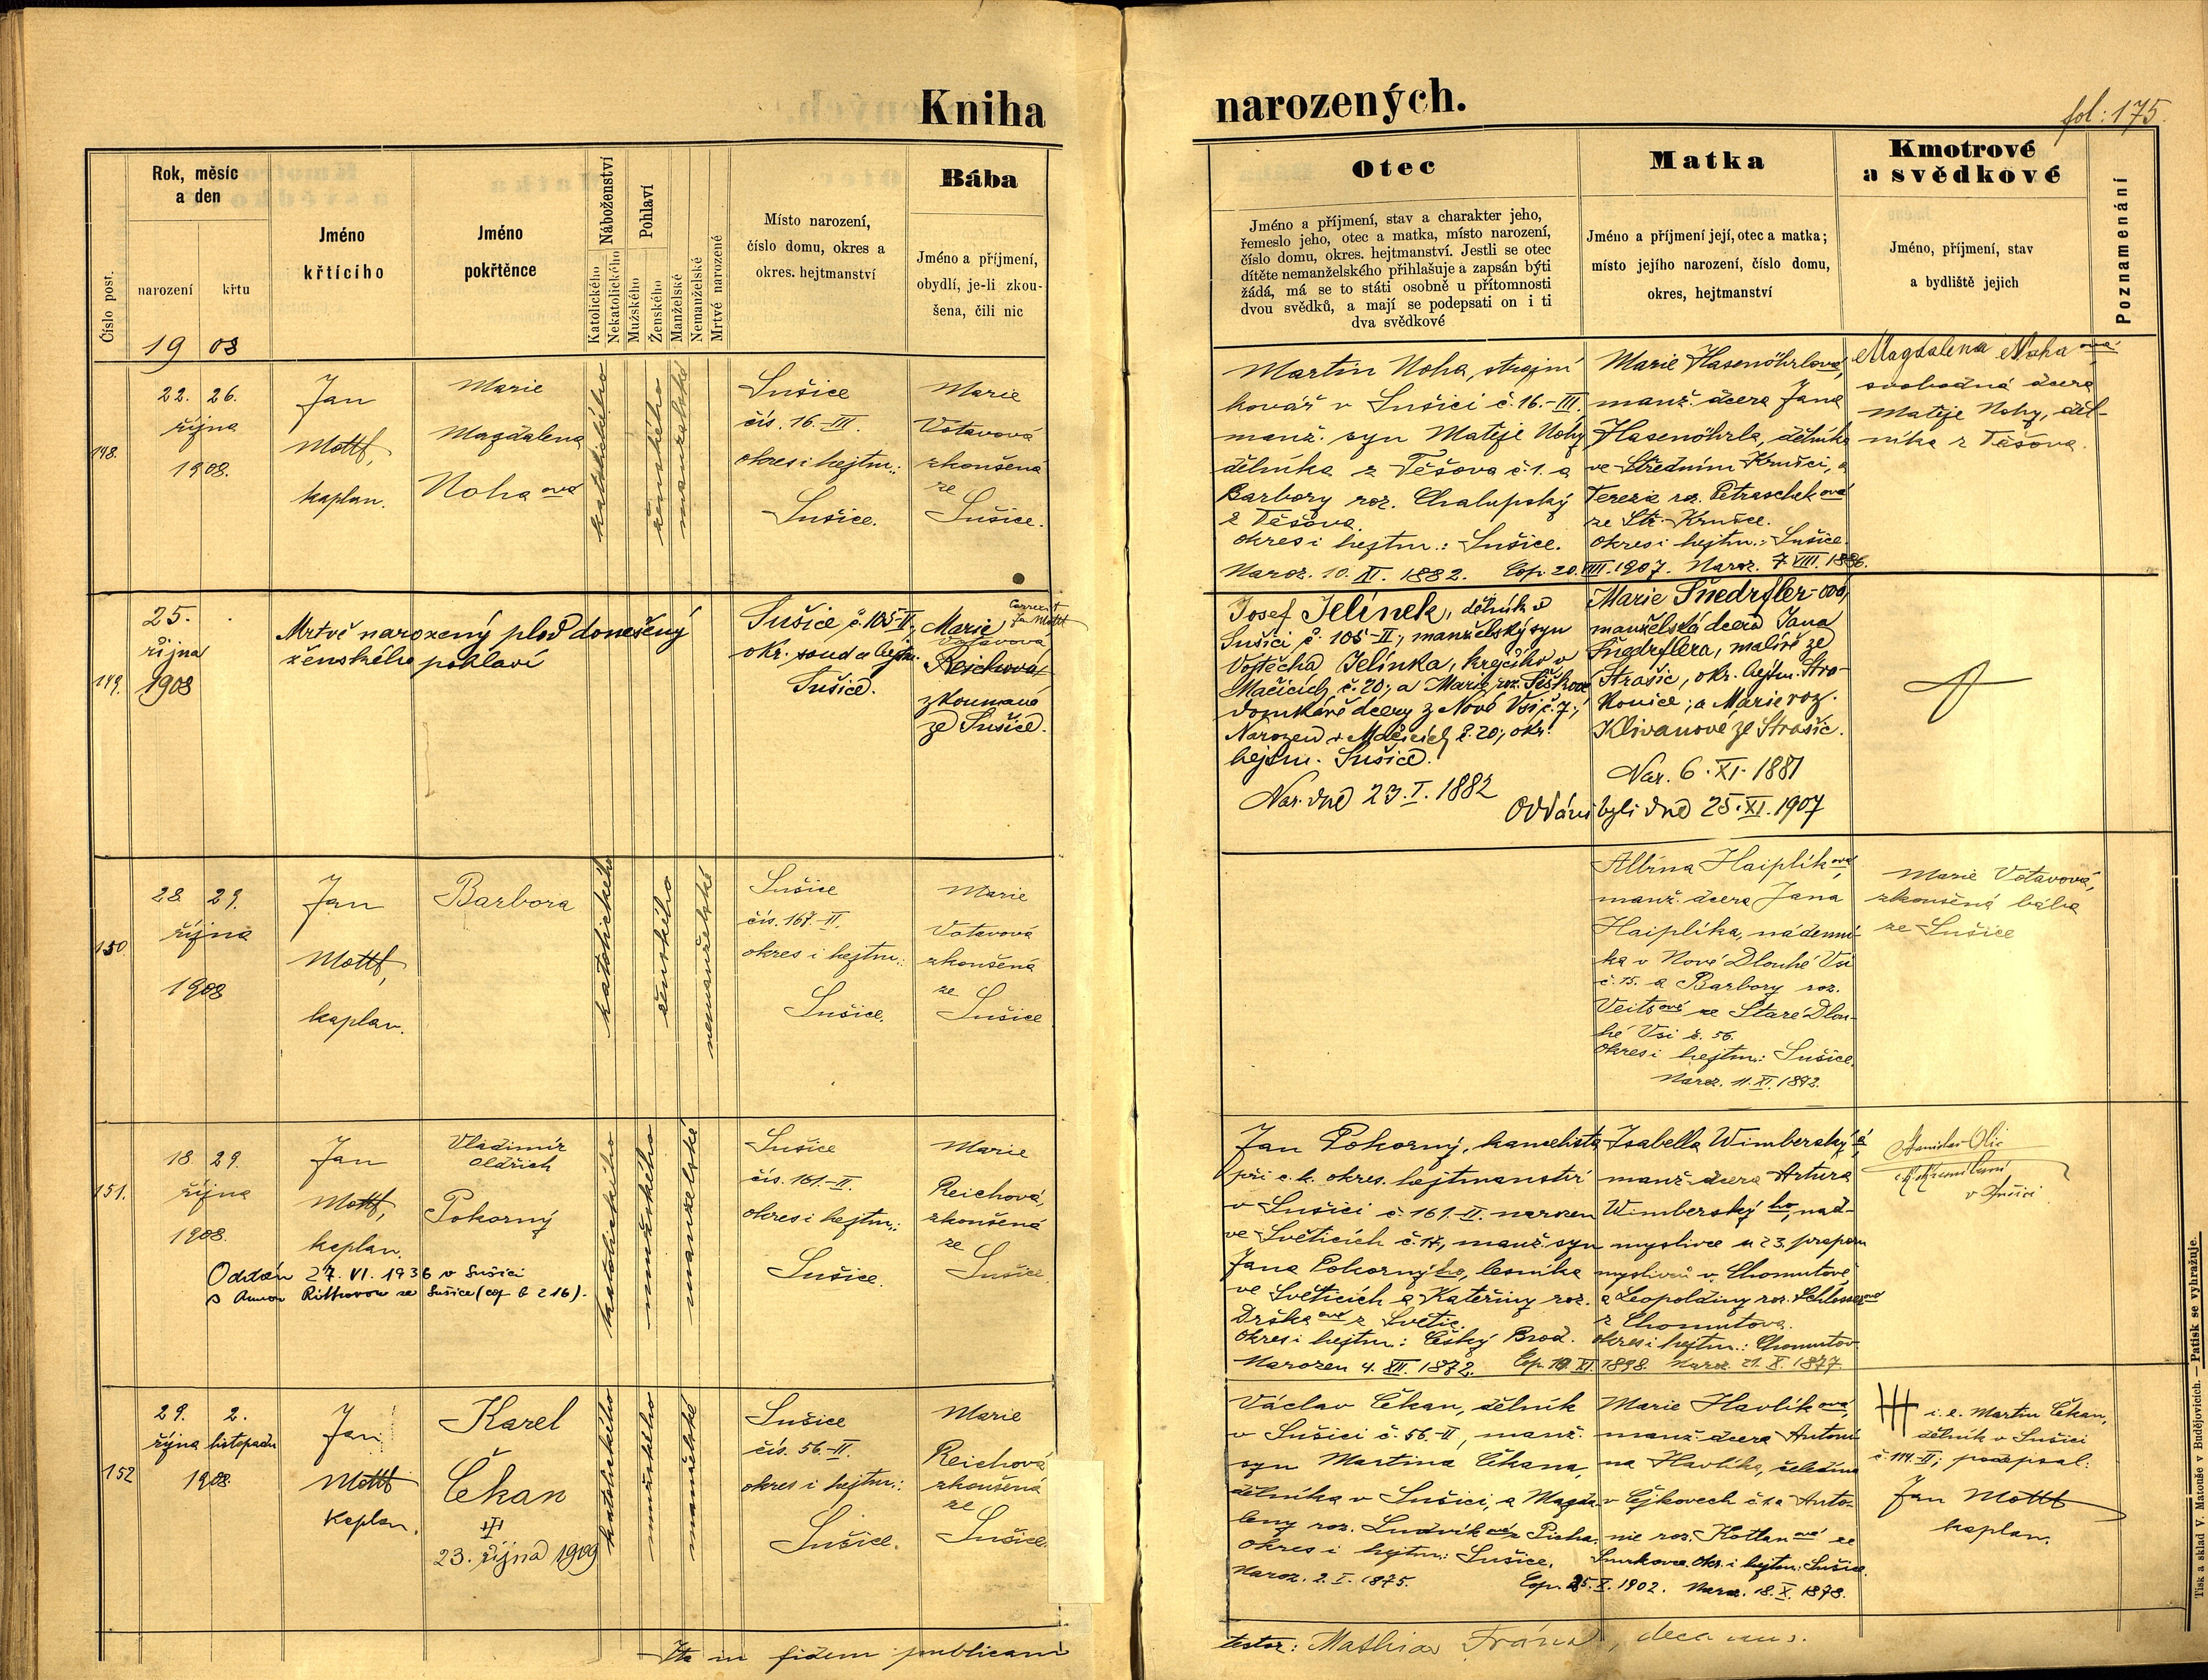 Kniha
narozených.
fol: 175.
Číslo post.
Rok, měsíc
a den
narození
křtu
19 08
Jméno
křtícího
Jméno
pokřtěnce
Náboženství
Katolického
Nekatolického
Pohlaví
Mužského
Ženského
Manželské
Nemanželské
Mrtvé narozené
Místo narození,
číslo domu, okres a
okres. hejtmanství
Bába
Jméno a příjmení,
obydlí, je-li zkou-
šena, čili nic
Otec
Jméno a příjmení, stav a charakter jeho,
řemeslo jeho, otec a matka, místo narození,
číslo domu, okres. hejtmanství. Jestli se otec
dítěte nemanželského přihlašuje a zapsán býti
žádá, má se to státi osobně u přítomnosti
dvou svědků, a mají se podepsati on i ti
dva svědkové
Matka
Jméno a příjmení její, otec a matka;
místo jejího narození, číslo domu,
okres, hejtmanství
Kmotrové
a svědkové
Jméno, příjmení, stav
a bydliště jejich
Poznamenání
148.
22. 26.
října
1908.
Jan
Mottl,
kaplan.
Marie
Magdalena
Noha ová
katolického
ženského
manželské
Sušice
čís. 16.-III.
okres i hejtm.:
Sušice.
Marie
Votavová
zkoušená
ze
Sušice.
Martin Noha, strojní
kovář v Sušici č. 16.-III.
manž. syn Matěje Nohy
dělníka z Těšova č. 1. a
Barbory roz. Chalupský
z Těšova.
okres i hejtm.: Sušice.
Naroz. 10. XI. 1882. Cop. 20. VIII. 1907.
Marie Hasenöhrlová,
manž. dcera Jana
Hasenöhrla, dělníka
ve Středním Krušci, a
Terezie roz. Petraschek ová
ze Stř. Krušce.
okres i hejtm.: Sušice.
Naroz. 7 VIII. 1886.
Magdalena Noha ová
svobodná dcera
Matěje Nohy, děl-
níka z Těšova.
149.
25.
října
1908
Mrtvě narozený plod donešený
ženského pohlaví
Sušice č. 105-II.,
okr. soud a hejtm.
Sušice.
Marie
Votavová
Reichová
zkoumaná
ze Sušice.
Josef Jelínek, dělník v
Sušici č. 105-II., manželský syn
Vojtěcha Jelínka, krejčího v
Mačicích č. 20; a Marie roz. Šiškové
domkáře dcery z Nové Vsi č. 7;
Narozen v Mačicích č. 20; okr.
hejtm. Sušice.
Nar. dne 23. I. 1882
Marie Šnedrfler-ová,
manželská dcera Jana
Šnedrflera, malíře ze
Strašic, okr. hejtm. Stra-
konice; a Marie roz.
Klivanové ze Strašic.
Nar. 6. XI. 1881
Oddáni byli dne 25. XI. 1907
150.
28. 29.
října
1908
Jan
Mottl,
kaplan.
Barbora
katolického
ženského
nemanželské
Sušice
čís. 167.-II.
okres i hejtm.:
Sušice.
Marie
Votavová
zkoušená
ze
Sušice
Albína Haiplík ová,
manž. dcera Jana
Haiplíka, nádenní-
ka v Nové Dlouhé Vsi
č. 15. a Barbory roz.
Veits ové ze Staré Dlou-
hé Vsi č. 56.
okres i hejtm.: Sušice.
Naroz. 11. XI. 1872.
Marie Votavová,
zkoušená bába
ze Sušice
151.
18. 29.
října
1908.
Jan
Mottl,
kaplan.
Vladimír
Oldřich
Pokorný
Oddán 27. VI. 1936 v Sušici
katolického
mužského
manželské
Sušice
čís. 161.-II.
okres i hejtm.:
Sušice.
Marie
Reichová,
zkoušená
ze
Sušice.
Jan Pokorný, kancelista
při c. k. okres. hejtmanství
v Sušici č. 161.-II. narozen
ve Světicích č. 17, manž. syn
Jana Pokorný ho, lesníka
ve Světicích a Kateřiny roz.
Drška ové z Světic.
okres i hejtm.: Český Brod.
Narozen 4. XII. 1872. Cop. 19. XI. 1898.
Isabella Wimberský á,
manž. dcera Artura
Wimberský ho, nad-
myslivce u 23. praporu
myslivců v Chomutově
a Leopoldiny roz. Schlosser ové
z Chomutova.
okres i hejtm.: Chomutov
Naroz. 21. X. 1877.
v Sušici
152
29. 2.
října listopadu
1908
Jan
Mottl
Kaplan.
Karel
Čkan
23. října 1909
katolického
mužského
manželské
Sušice
čís. 56.-II.
okres i hejtm.:
Sušice.
Marie
Reichová
zkoušená
ze
Sušice.
Václav Čkan, dělník
v Sušici č. 56.-II, manž.
syn Martina Čkana,
dělníka v Sušici, a Magda-
leny roz. Ludvík ové z Picha.
okres i hejtm.: Sušice.
Naroz. 2. I. 1875. Cop. 25. X. 1902.
Marie Havlík ová,
manž. dcera Antoni-
na Havlíka, čeledína
v Čejkovech č. 1 a Anto-
nie roz. Kotlan ové ze
Smrkova. Okr. i hejtm.: Sušice.
Naroz. 18. X. 1878.
i. e. Martin Čkan,
dělník v Sušici
č. 114.-II; podepsal:
Jan Mottl
kaplan.
Ita in fidem publicam
testor: Mathias
Tisk a sklad V. Matouše v Budějovicích. — Patisk se vyhražuje.